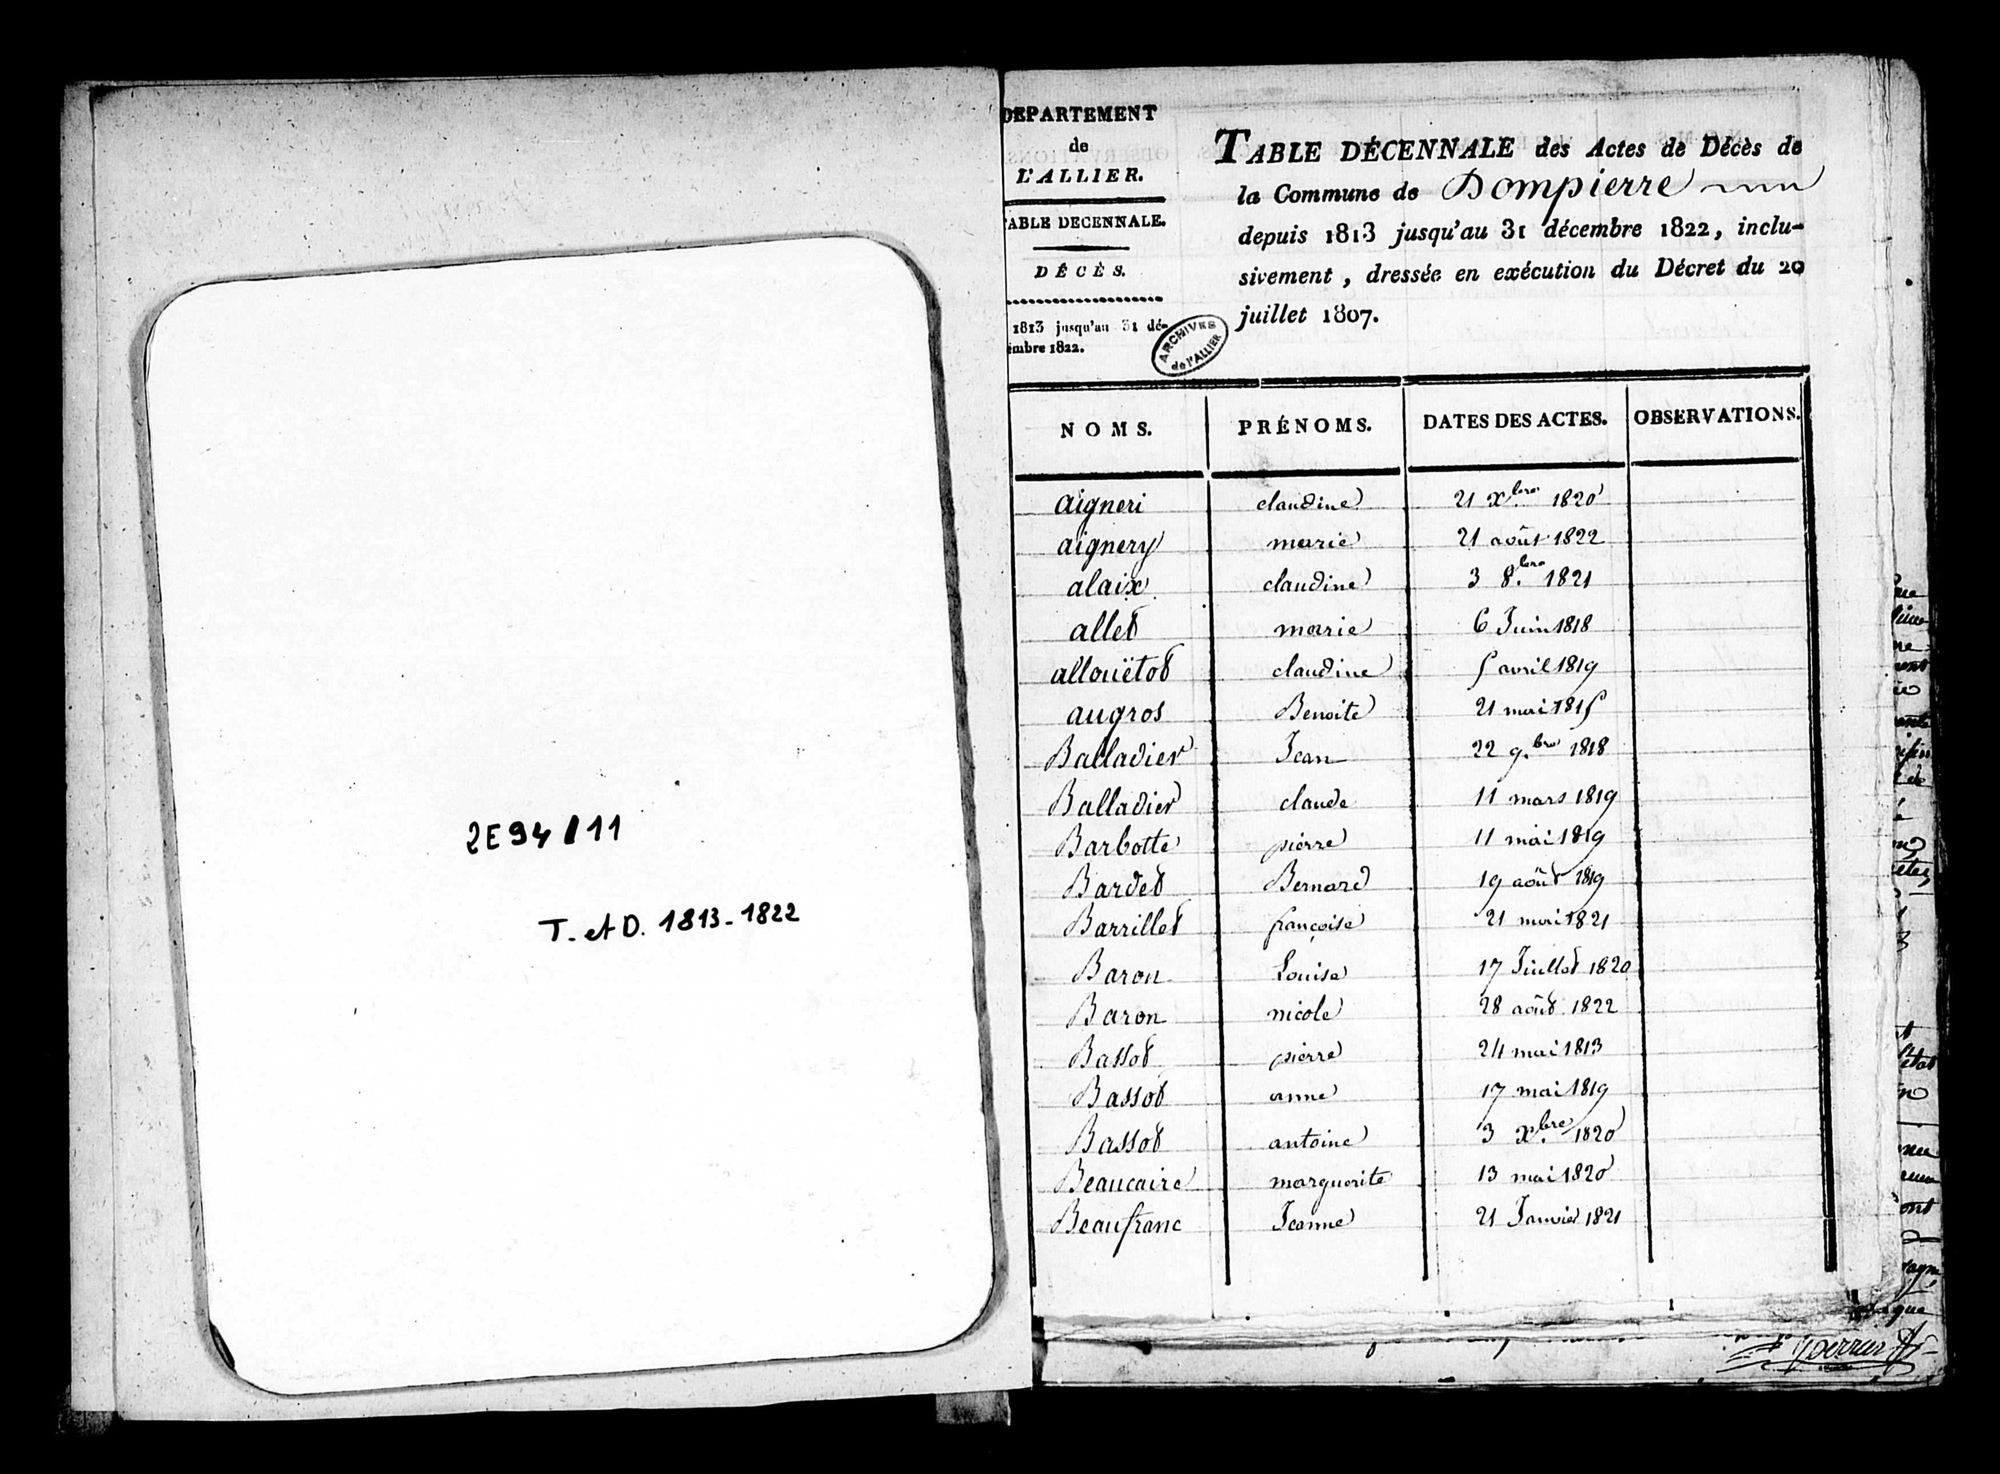 2E94/11
T. et D. 1813-1822
DEPARTEMENT
de
L'ALLIER.
TABLE DECENNALE.
DÉCÈS.
1813 jusqu'au 31 dé-
embre 1822.
ARCHIVES
de l'ALLIER
TABLE DÉCENNALE des Actes de Décès de
la Commune de Dompierre
depuis 1813 jusqu'au 31 décembre 1822, inclu-
sivement, dressée en exécution du Décret du 20
juillet 1807.
NOMS. PRÉNOMS. DATES DES ACTES. OBSERVATIONS.
aigneri claudine 21 Xbre 1820
aignery marie 21 août 1822
alaix claudine 3 8.bre 1821
allet marie 6 Juin 1818
allouëtot claudine 5 avril 1819
augros Benoite 21 mai 1815
Balladier Jean 22 9.bre 1818
Balladier claude 11 mars 1819
Barbotte pierre 11 mai 1819
Bardet Bernard 19 août 1819
Barrillet françoise 21 mai 1821
Baron Louise 17 Juillet 1820
Baron nicole 28 août 1822
Bassot pierre 24 mai 1813
Bassot anne 17 mai 1819
Bassot antoine 3 Xbre 1820
Beaucaire marguerite 13 mai 1820
Beaufranc Jeanne 21 Janvier 1821